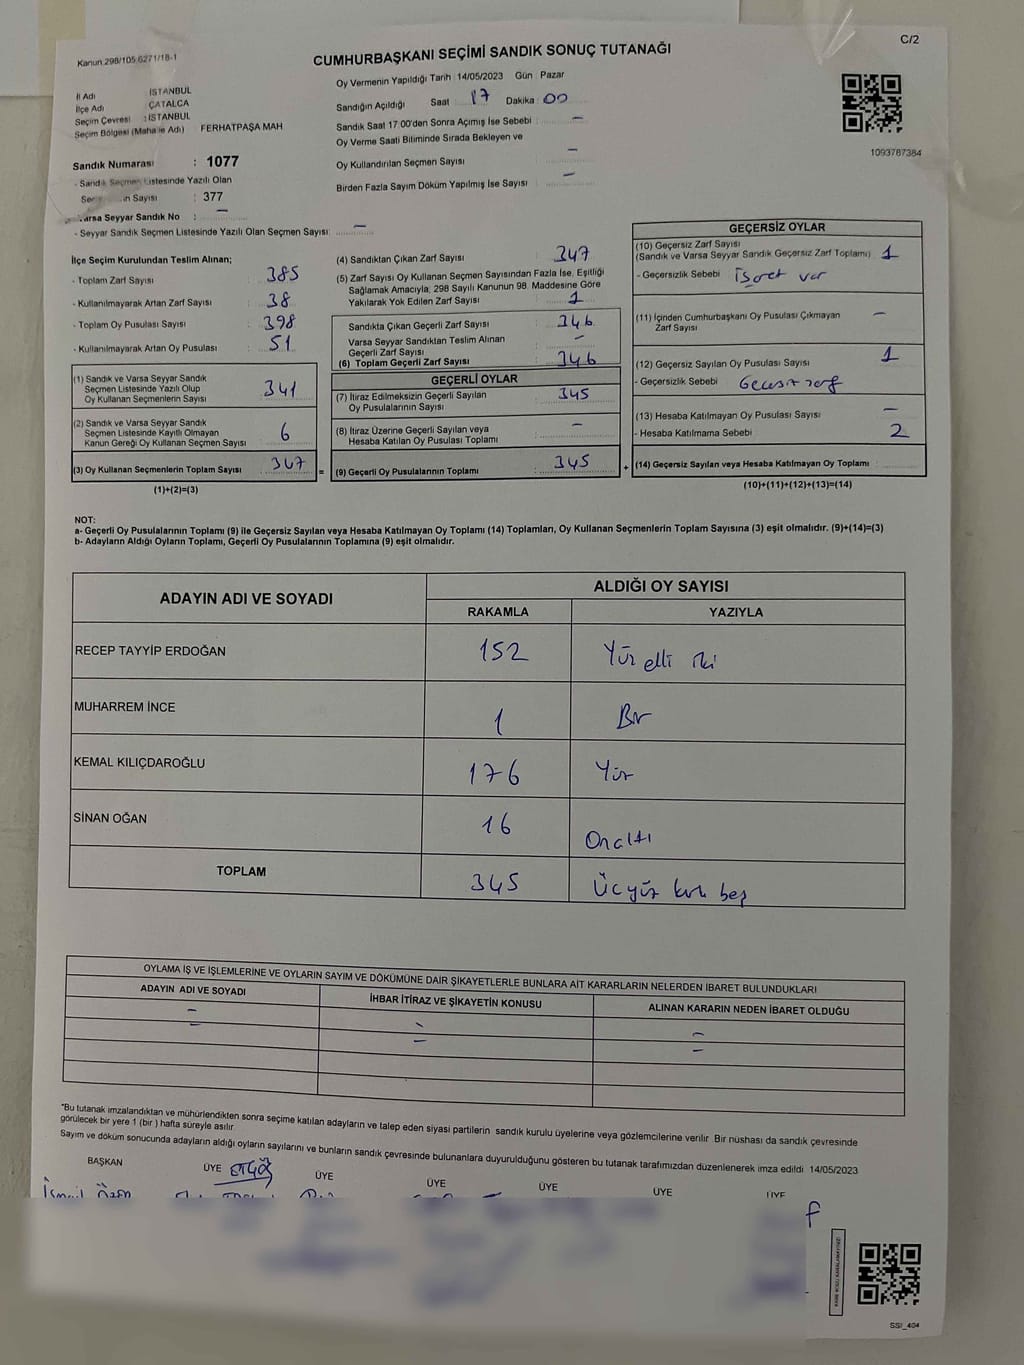 C/2
Kanun 298/105.6271/18-1
CUMHURBAŞKANI SEÇİMİ SANDIK SONUÇ TUTANAĞI
1093767384
İl Adı : İSTANBUL
İlçe Adı : ÇATALCA
Seçim Çevresi : İSTANBUL
Seçim Bölgesi (Mahalle Adı) FERHATPAŞA MAH
Sandık Numarası : 1077
- Sandık Seçmen Listesinde Yazılı Olan
Sayısı : 377
Varsa Seyyar Sandık No : –
- Seyyar Sandık Seçmen Listesinde Yazılı Olan Seçmen Sayısı : –
Oy Vermenin Yapıldığı Tarih : 14/05/2023 Gün : Pazar
Sandığın Açıldığı Saat : 17 Dakika : 00
Sandık Saat 17.00'den Sonra Açımış İse Sebebi : –
Oy Verme Saati Bitiminde Sırada Bekleyen ve
Oy Kullandırılan Seçmen Sayısı –
Birden Fazla Sayım Döküm Yapılmış İse Sayısı : –
İlçe Seçim Kurulundan Teslim Alınan;
- Toplam Zarf Sayısı : 385
- Kullanılmayarak Artan Zarf Sayısı : 38
- Toplam Oy Pusulası Sayısı : 398
- Kullanılmayarak Artan Oy Pusulası : 51
(1) Sandık ve Varsa Seyyar Sandık
Seçmen Listesinde Yazılı Olup
Oy Kullanan Seçmenlerin Sayısı : 341
(2) Sandık ve Varsa Seyyar Sandık
Seçmen Listesinde Kayıtlı Olmayan
Kanun Gereği Oy Kullanan Seçmen Sayısı : 6
(3) Oy Kullanan Seçmenlerin Toplam Sayısı : 347 =
(1)+(2)=(3)
(4) Sandıktan Çıkan Zarf Sayısı : 347
(5) Zarf Sayısı Oy Kullanan Seçmen Sayısından Fazla İse, Eşitliği
Sağlamak Amacıyla, 298 Sayılı Kanunun 98. Maddesine Göre
Yakılarak Yok Edilen Zarf Sayısı : 1
Sandıkta Çıkan Geçerli Zarf Sayısı : 346
Varsa Seyyar Sandıktan Teslim Alınan
Geçerli Zarf Sayısı : –
(6) Toplam Geçerli Zarf Sayısı : 346
GEÇERLİ OYLAR
(7) İtiraz Edilmeksizin Geçerli Sayılan
Oy Pusulalarının Sayısı : 345
(8) İtiraz Üzerine Geçerli Sayılan veya
Hesaba Katılan Oy Pusulası Toplamı : –
(9) Geçerli Oy Pusulalarının Toplamı : 345 +
GEÇERSİZ OYLAR
(10) Geçersiz Zarf Sayısı
(Sandık ve Varsa Seyyar Sandık Geçersiz Zarf Toplamı) 1
- Geçersizlik Sebebi : işaret var
(11) İçinden Cumhurbaşkanı Oy Pusulası Çıkmayan
Zarf Sayısı –
(12) Geçersiz Sayılan Oy Pusulası Sayısı 1
- Geçersizlik Sebebi : Geçersiz zarf
(13) Hesaba Katılmayan Oy Pusulası Sayısı –
- Hesaba Katılmama Sebebi : 2
(14) Geçersiz Sayılan veya Hesaba Katılmayan Oy Toplamı
(10)+(11)+(12)+(13)=(14)
NOT:
a- Geçerli Oy Pusulalarının Toplamı (9) ile Geçersiz Sayılan veya Hesaba Katılmayan Oy Toplamı (14) Toplamları, Oy Kullanan Seçmenlerin Toplam Sayısına (3) eşit olmalıdır. (9)+(14)=(3)
b- Adayların Aldığı Oyların Toplamı, Geçerli Oy Pusulalarının Toplamına (9) eşit olmalıdır.
ADAYIN ADI VE SOYADI ALDIĞI OY SAYISI
RAKAMLA YAZIYLA
RECEP TAYYİP ERDOĞAN 152 Yüz elli iki
MUHARREM İNCE 1 Bir
KEMAL KILIÇDAROĞLU 176 Yüz
SİNAN OĞAN 16 Onaltı
TOPLAM 345 Üçyüz kırk beş
OYLAMA İŞ VE İŞLEMLERİNE VE OYLARIN SAYIM VE DÖKÜMÜNE DAİR ŞİKAYETLERLE BUNLARA AİT KARARLARIN NELERDEN İBARET BULUNDUKLARI
ADAYIN ADI VE SOYADI İHBAR İTİRAZ VE ŞİKAYETİN KONUSU ALINAN KARARIN NEDEN İBARET OLDUĞU
– – –
– – –
*Bu tutanak imzalandıktan ve mühürlendikten sonra seçime katılan adayların ve talep eden siyasi partilerin sandık kurulu üyelerine veya gözlemcilerine verilir. Bir nüshası da sandık çevresinde
görülecek bir yere 1 (bir ) hafta süreyle asılır
Sayım ve döküm sonucunda adayların aldığı oyların sayılarını ve bunların sandık çevresinde bulunanlara duyurulduğunu gösteren bu tutanak tarafımızdan düzenlenerek imza edildi. 14/05/2023
BAŞKAN ÜYE ÜYE ÜYE ÜYE ÜYE ÜYE
İsmail
SSI_404